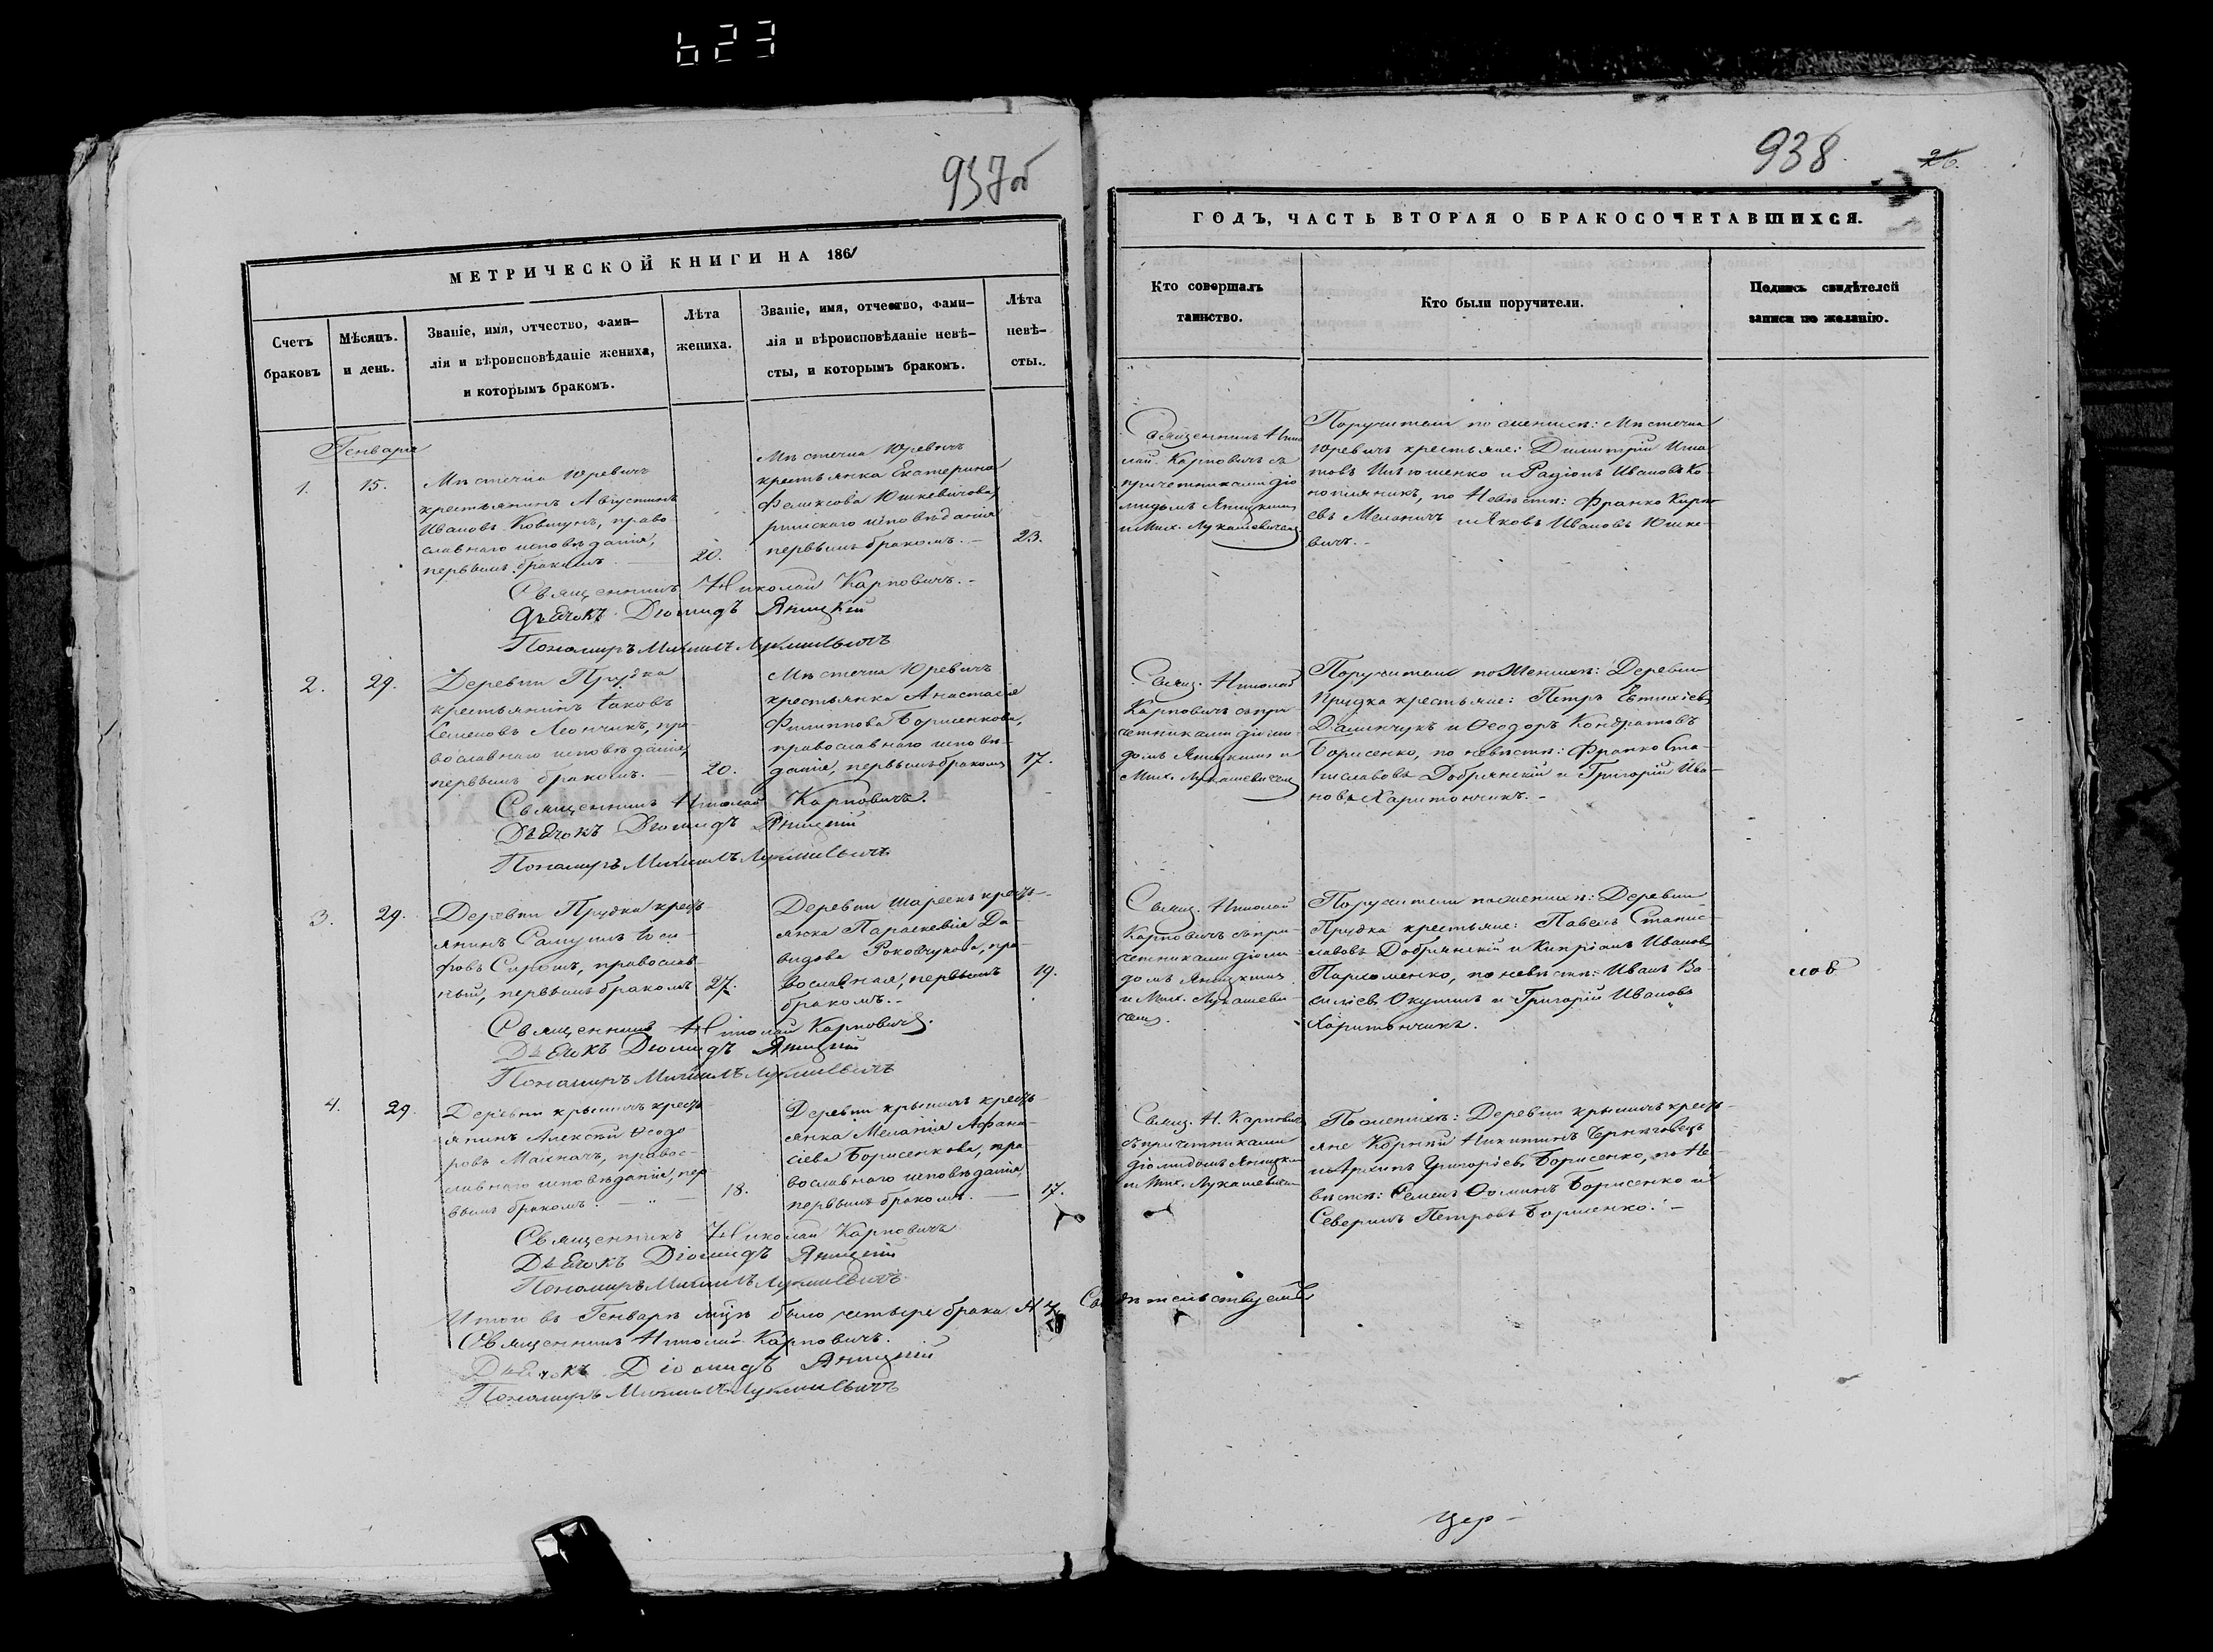 623
937об
МЕТРИЧЕСКОЙ КНИГИ НА 1861
Счетъ
браковъ
Мѣсяцъ.
и день.
Званіе, имя, отчество, фами-
лія и вѣроисповѣданіе жениха,
и которымъ бракомъ.
Лѣта
жениха.
Званіе, имя, отчество, фами-
лія и вѣроисповѣданіе невѣ-
сты, и которымъ бракомъ.
Лѣта
невѣ-
сты.
Генваря
1.
15.
Мѣстечка Юревичъ
крестьянинъ Августинъ
Ивановъ Ковтунъ, право-
славнаго исповѣданія,
первымъ бракомъ.
20.
Мѣстечка Юревичъ
крестьянка Екатерина
Феликсова Юшкевичова,
римскаго исповѣданія
первымъ бракомъ. -
23.
Священникъ Николай Карповичъ. -
Дьячокъ Діомидъ Яницкій
Пономаръ Михаилъ Лукашевичъ
2.
29.
Деревни Прудка
крестьянинъ Іаковъ
Семеновъ Леончикъ, пра-
вославнаго исповѣданія,
первымъ бракомъ. -
20.
Мѣстечка Юревичъ
крестьянка Анастасія
Филиппова Борисенкова,
православнаго исповѣ-
данія, первымъ бракомъ
17.
Священникъ Николай Карповичъ.
Дьячокъ Діомидъ Яницкій
Пономаръ Михаилъ Лукашевичъ
3.
29.
Деревни Прудка кресть-
янинъ Самуилъ Іоси-
фовъ православ-
ный, первымъ бракомъ
27.
Деревни кресть-
янка Параскевія Да-
видова пра-
вославная, первымъ
бракомъ. -
19.
Священникъ Николай Карповичъ.
Дьячокъ Діомидъ Яницкій
Пономаръ Михаилъ Лукашевичъ
4.
29.
Деревни Крышичъ кресть-
янинъ Алексѣй Ѳеодо-
ровъ Махначъ, правос-
лавнаго исповѣданія, пер-
вымъ бракомъ. -
18.
Деревни Крышичъ кресть-
янка Меланія Афана-
сіева Борисенкова, пра-
вославнаго исповѣданія,
первымъ бракомъ. -
17.
Священникъ Николай Карповичъ
Дьячокъ Діомидъ Яницкій
Пономаръ Михаилъ Лукашевичъ
Итого въ Генварѣ м-цѣ было четыре брака № 4
Священникъ Николай Карповичъ.
Дьячокъ Діомидъ Яницкій
Пономаръ Михаилъ Лукашевичъ
938
26.
ГОДЪ, ЧАСТЬ ВТОРАЯ О БРАКОСОЧЕТАВШИХСЯ.
Кто совершалъ
таинство.
Кто были поручители.
Подпись свидѣтелей
записи по желанію.
Священникъ Нико-
лай Карповичъ съ
причетниками Діо-
мидомъ Яницкимъ
и Мих. Лукашевичемъ
Поручители по женихѣ: Мѣстечка
Юревичъ крестьяне: Димитрій Игна-
товъ и Радіонъ Ивановъ Ко-
нопляникъ, по Невѣстѣ: Франко
Меланичъ и Яковъ Ивановъ Юшке-
вичъ. -
Свящ. Николай
Карповичъ съ при-
четниками Діоми-
домъ Яницкимъ и
Мих. Лукашевичемъ
Поручители по Женихѣ: Деревни
Прудка крестьяне: Петръ Евтихіевъ
и Ѳеодоръ Кондратовъ
Борисенко, по невѣстѣ: Франко Ста-
ниславовъ Добрянскій и Григорій Ива-
новъ Харитончикъ. -
Свящ. Николай
Карповичъ съ при-
четниками Діоми-
домъ Яницкимъ
и Мих. Лукашеви-
чемъ.
Поручители по женихѣ: Деревни
Прудка крестьяне: Павелъ Станис-
лавовъ Добрянскій и Кипріанъ Ивановъ
Пархоменко, по невѣстѣ: Иванъ Ва-
силіевъ Окулинъ и Григорій Ивановъ
Харитончикъ.
Свящ. Н. Карповичъ
съ причетниками
Діомидомъ Яницким
и Мих. Лукашевичем
По женихѣ: Деревни Крышичъ кресть-
яне Корнѣй Никитинъ
и Архипъ Григоріевъ Борисенко, по Не-
вѣстѣ: Семенъ Ѳоминъ Борисенко и
Северинъ Петровъ Борисенко. -
Свидѣтельствуемъ
цер-